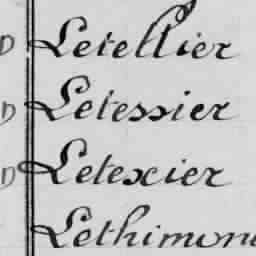 D Letellier
D Letessier
D Letexier
Lethimon